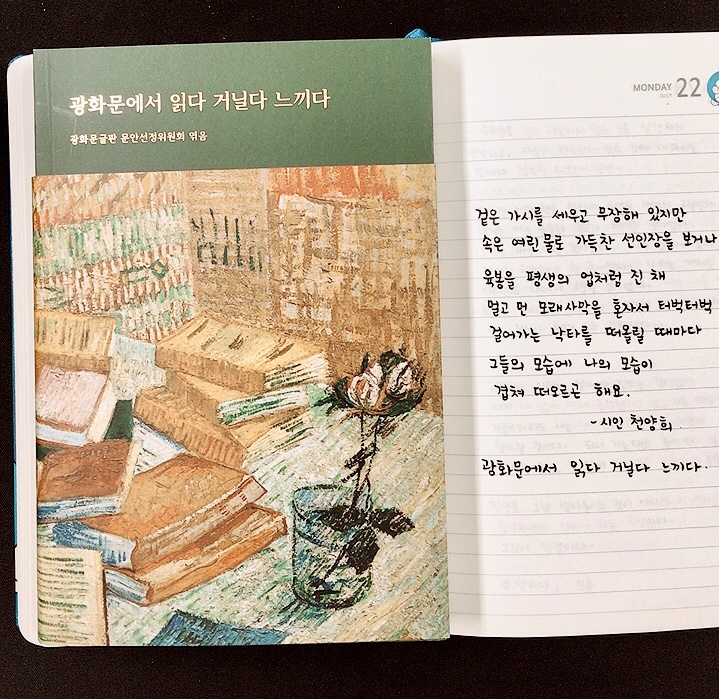 광화문에서 읽다 거닐다 느끼다
광화문글판 문안선정위원회 엮음
MONDAY 22
JULY
겉은 가시를 세우고 무장해 있지만
속은 여린 물로 가득찬 선인장을 보거나
육봉을 평생의 업처럼 진 채
멀고 먼 모래사막을 혼자서 터벅터벅
걸어가는 낙타를 떠올릴 때마다
그들의 모습에 나의 모습이
겹쳐 떠오르곤 해요.
- 시인 천양희.
광화문에서 읽다 거닐다 느끼다.